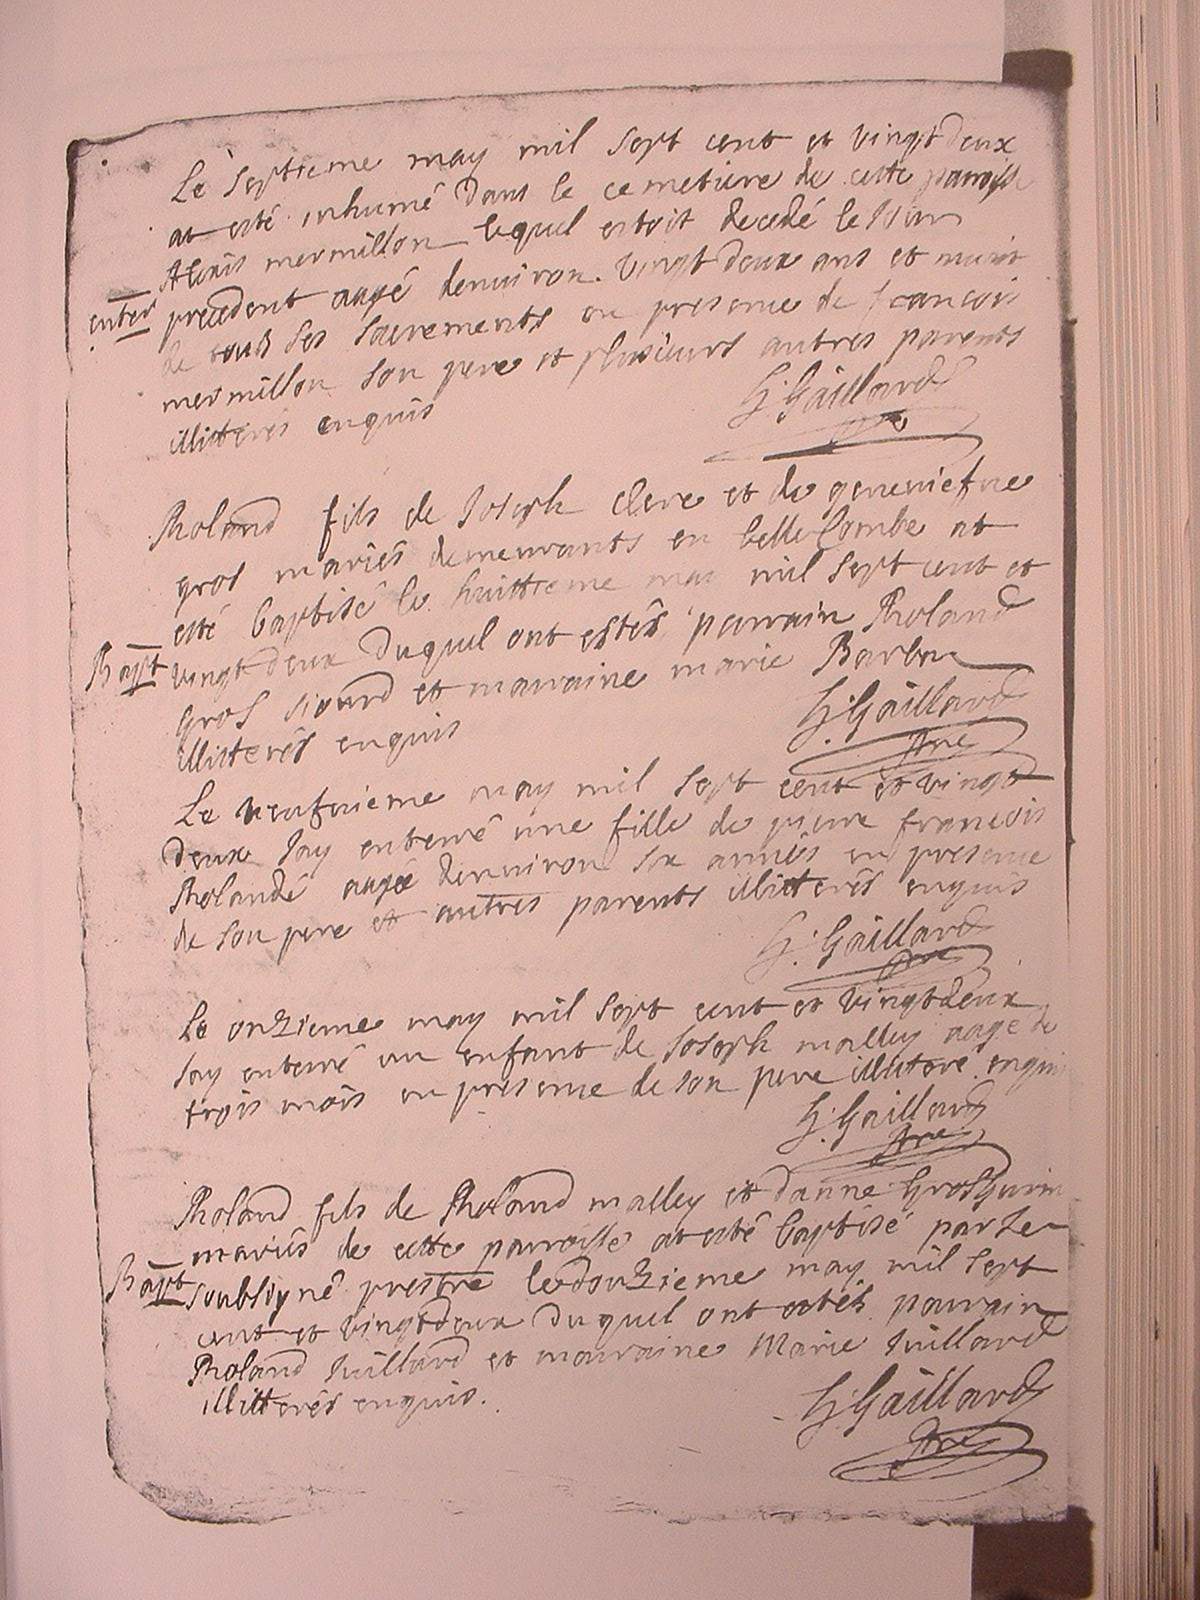 Le septieme may mil sept cent et vingt deux
at esté inhumé dans le cemetiere de cette paroisse
Alexis mermillon lequel estoit decedé le Jour
enterr precedent aagé denuiron vingt deux ans et muni
de tous ses sacrements en presence de francois
mermillon son pere et plusieurs autres parents
illitterés enquis
G: Gaillard
Rholand fils de Joseph Clerc et de geneniefue
gros mariés demeurants en belleCombe at
esté baptisé le huittieme may mil sept cent et
Bapt vingt deux duquel ont estés parrain Rholand
gros et marraine marie
illitterés enquis
G: Gaillard
Le neufuieme may mil sept cent et vingt
deux Jay enterré une fille de pierre francois
Rholande aagée denuiron six années en presence
de son pere et autres parents illitterés enquis
G: Gaillard
Le onzieme may mil sept cent et vingt deux
Jay enterré un enfant de Joseph malley aagé de
trois mois en presence de son pere illiteré enquis
G: Gaillard
Rholand fils de Rholand malley et danne
mariés de cette parroisse at esté baptisé par Le
Bapt soubsigné prestre le douzieme may mil sept
cent et vingt deux duquel ont estés parrain
Rholand Juillard et marraine Marie Juillard
illitterés enquis.
G: Gaillard